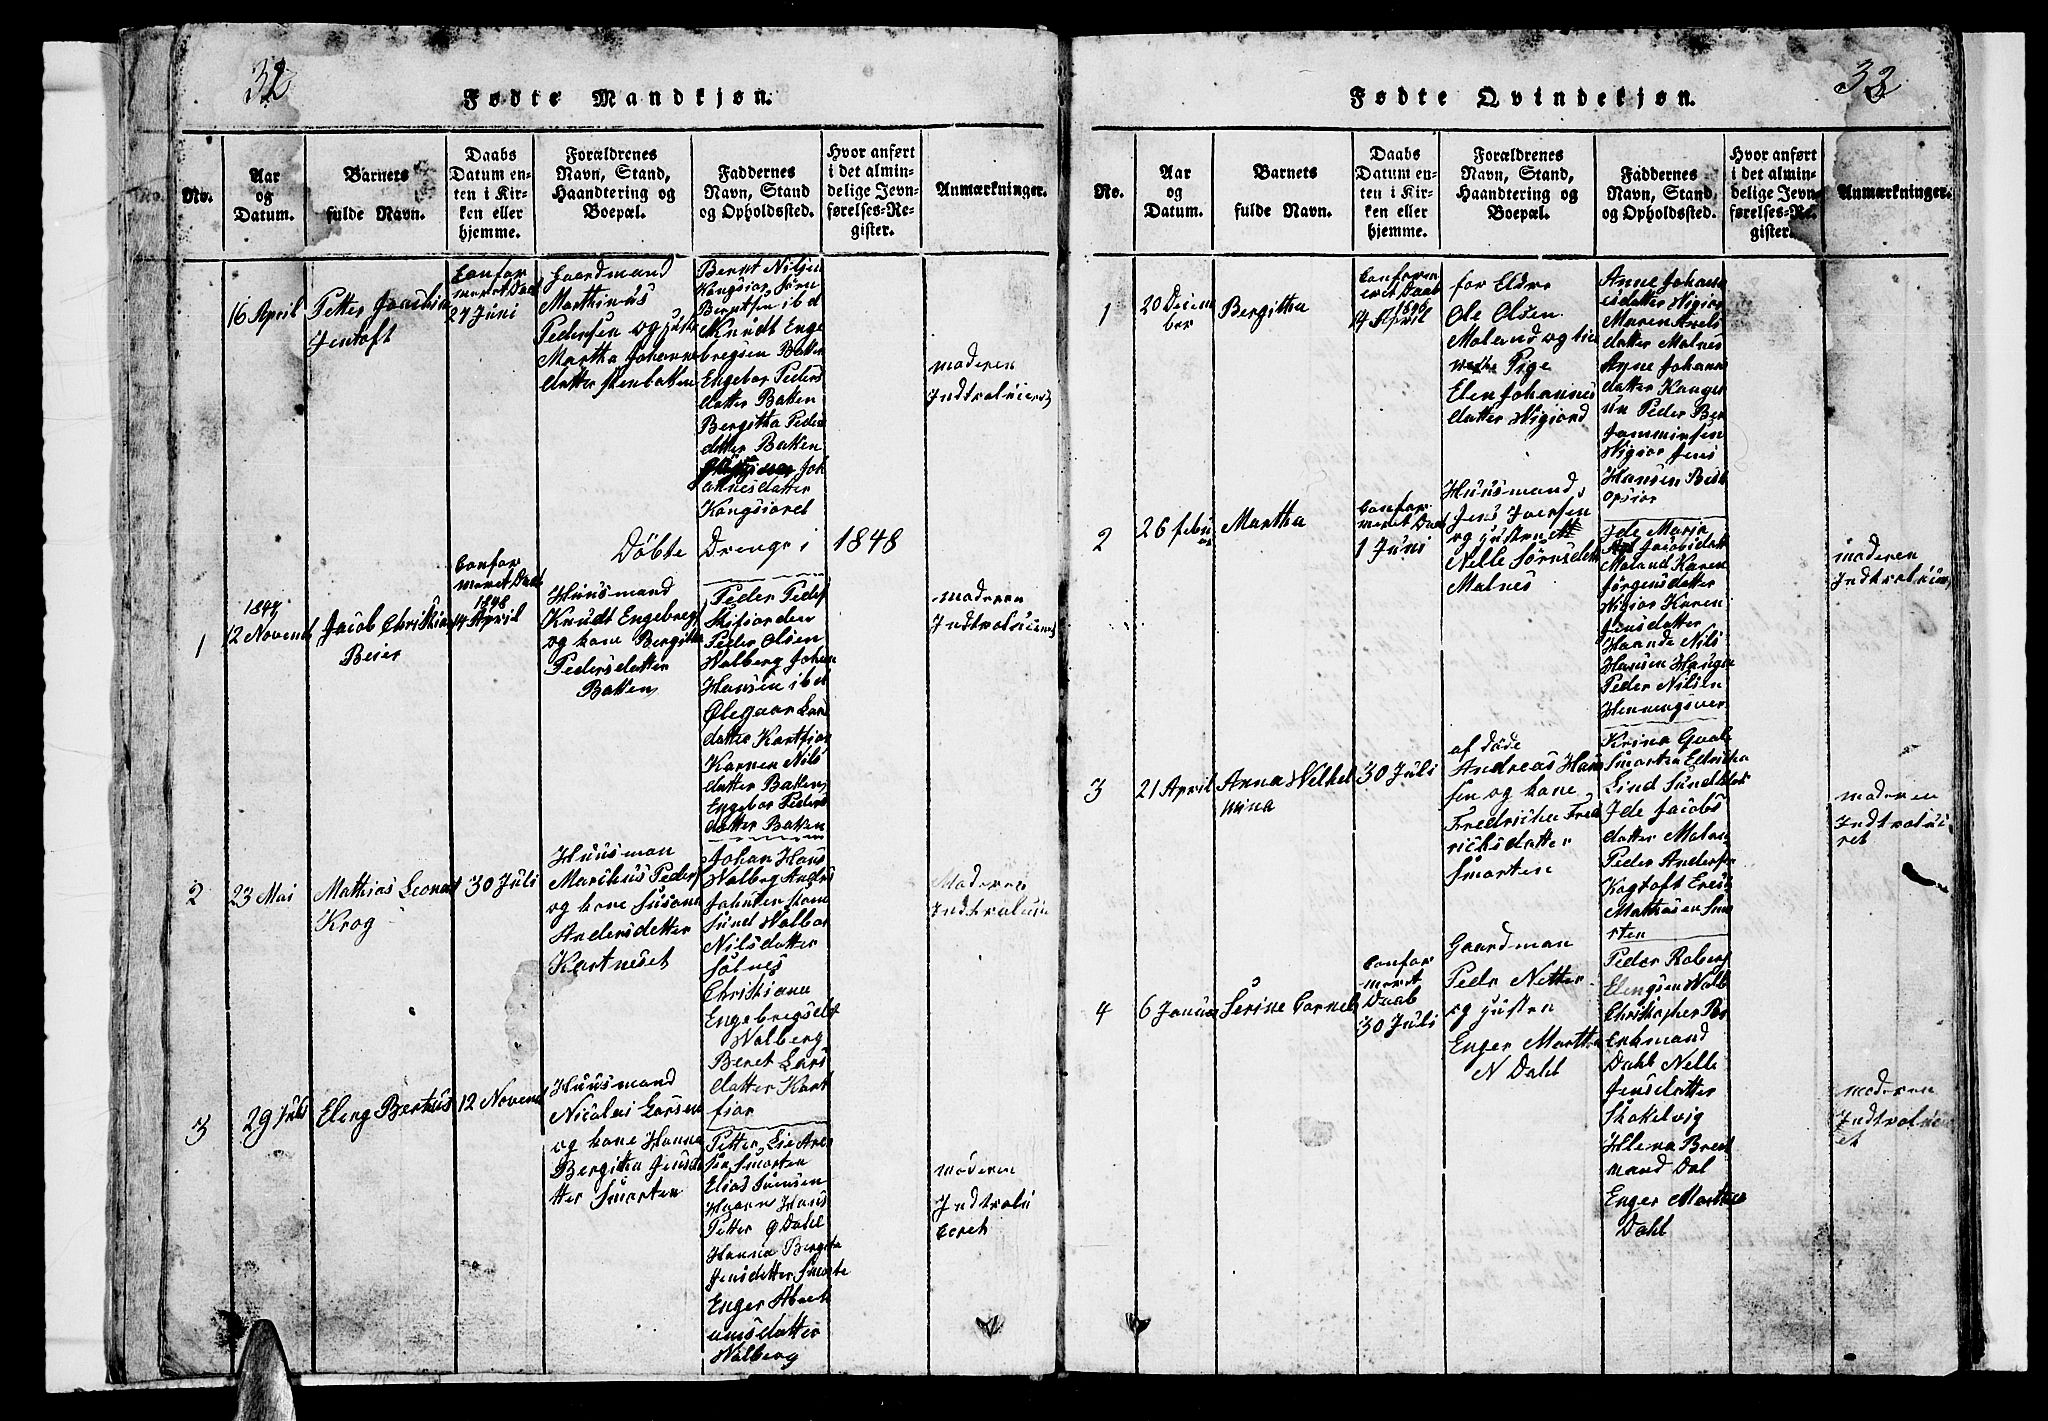 32
Fødte Mandkjøn.
No.
Aar
og
Datum.
Barnets
fulde Navn.
Daabs
Datum en-
ten i Kir-
ken eller
hjemme.
Forældrenes
Navn, Stand,
Haandtering og
Boepæl.
Faddernes
Navn, Stand
og Opholdssted.
Hvor anført
i det almin-
delige Jevn-
førelses-Re-
gister.
Anmærkninger.
16 April
Petter Joachim
Jentoft
Confor
meret Daab
27 Juni
Gaardmand
Marthinus
Pedersen og
Martha Johanne
datter Stenbakken
Bernt Nilsen
Kongsior Sørn
Berntsen ibd
Knudt Enge
bregsen Bakken
Engebor Peders
datter Bakken
Bergitha Peders
datter Bakken
Joh
annesdatter
Kongsioret
moderen
Døbte Drenge i 1848
1
1847
12 Novemb
Jacob Christian
Beier
Confor
meret Daab
1848
14 April
Huusmand
Knudt Engebregs
og kone Bergitha
Pedersdatter
Bakken
Peder Peders
Skifiorden
Peder Olsen
Walberg Johan
Hansen ibd
Olegaar Lars
datter Kartfior
Karnen Nils
datter Bakken
Engebor Peders
datter Bakken
moderen
2
23 Mai
Mathias Leonart
Krog
30 Juli
Huusman
Marthus Peders
og kone Susana
Andersdatter
Kartneset
Johan Hans
Walberg Andrs
Johnsen
Sund Walbor
Nilsdatter
Solnes
Christiana
Engebregsdat
Walberg
Beret Lars
datter Kart
fior
Moderen
3
29 Juli
Eleng Bertheus
12 Novemb
Huusmand
Nicolai Larsen
og kone Hanna
Bergitha Jensda
tter Smorten
Petter Lie Are
sen Smorten
Elias Svensen
Haarn Hans
Petter Ø Dahl
Hanna Bergita
Jensdatter Smorte
Enger Abrah
amsdatter
Walberg
moderen
Indtrolui
ceret
32
Fødte Qvindekjøn.
No.
Aar
og
Datum.
Barnets
fulde Navn.
Daabs
Datum en-
ten i Kir-
ken eller
hjemme.
Forældrenes
Navn, Stand,
Haandtering og
Boepæl.
Faddernes
Navn, Stand,
og Opholdssted.
Hvor anført
i det almin-
delige Jevn-
førelses-Re-
gister.
Anmærkninger.
1
20 Decem
ber
Bergitha
Confor
meret Daab
14 April
for Eldre
Ole Olsen
Moland og tie
nende Pige
Elen Johannes
datter Nigiord
Anne Johann
esdatter Nigior
Maren Axels
datter Malnes
Anne Johann
datter Kange
Peder Ben
Jamminsen
Nigior Jens
Hansen Best
opsior
2
26 febru
ar
Martha
Confor
meret Daab
1 Juni
Huusmand
Jens Iversen
og Hustru
Nelle Sørnsdatt
Malnes
Ide Marja
Jacobsdatt
Moland Karen
Jørgensdatter
Nigior Karen
Jensdatter
Haande Nils
Hansen Hange
Peder Nilsen
Henningsver
moderen
3
21 April
Anna Wilhel
mina
30 Juli
af døde
Andreas Han
sen og kone
Fredricha Fred
richsdatter
Smorten
Krina Qvale
Smorten Eldricha
Lind Sundklak
Ide Jacobs
datter Malnes
Peder Anderse
Kogtoft Eres
Mathiasen Smo
rten
moderen
Indtrolui
ret
4
6 Januar
Serine Cornel
Confor
meret
Daab
30 Juli
Gaardman
Pedr Netter
og Hustru
Enger Martha
N Dahl
Peder Roberg
Elengsen Walb
Christopher
Dahl Nelle
Jensdatter
Skakelvig
Helena Brech
mand Dal
Enger Marthea
Dahl
moderen
Indtroluicer
et